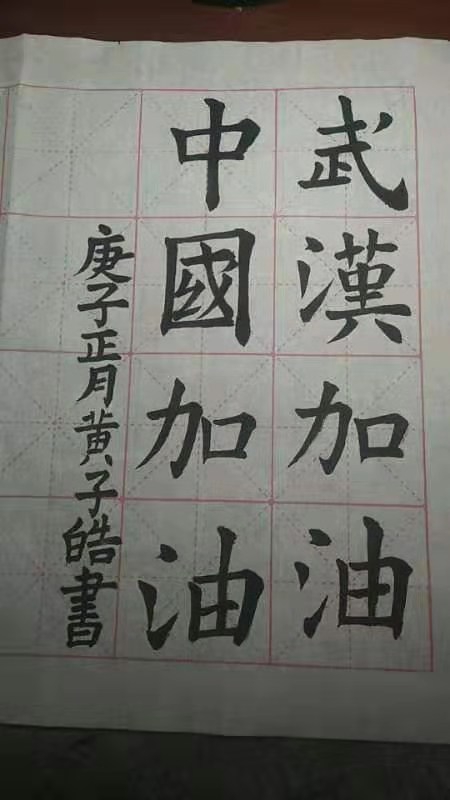 武漢加油
中國加油
庚子正月黄子皓書